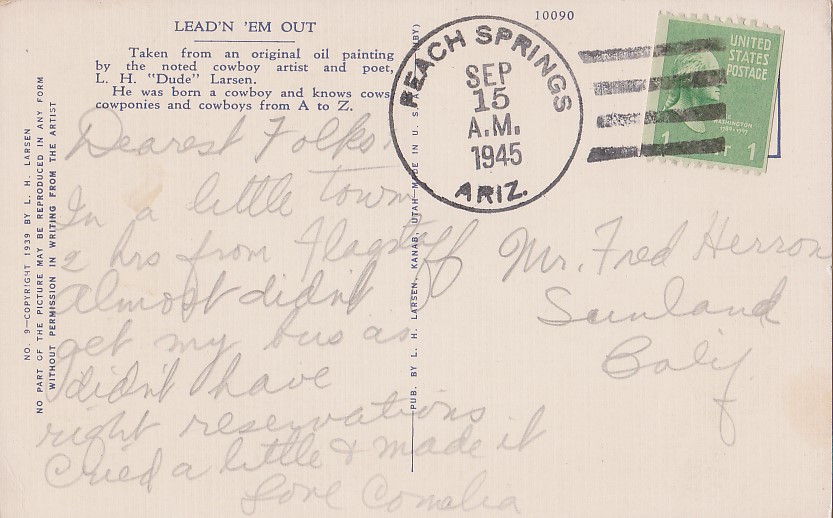 LEAD'N 'EM OUT
Taken from an original oil painting
by the noted cowboy artist and poet,
L. H. "Dude" Larsen.
He was born a cowboy and knows cows,
cowponies and cowboys from A to Z.
10090
PEACH SPRINGS
SEP
15
A.M.
1945
ARIZ.
UNITED
STATES
POSTAGE
WASHINGTON
1789-1797
1 1
NO. 9—COPYRIGHT 1939 BY L. H. LARSEN
NO PART OF THE PICTURE MAY BE REPRODUCED IN ANY FORM
WITHOUT PERMISSION IN WRITING FROM THE ARTIST
PUB. BY L. H. LARSEN, KANAB, UTAH—MADE IN U. S.
Dearest Folks:
In a little town
2 hrs from Flagstaff
almost didn't
get my bus as
didn't have
right reservations
Cried a little & made it
Love
Mr. Fred Herron
Sunland
Calif